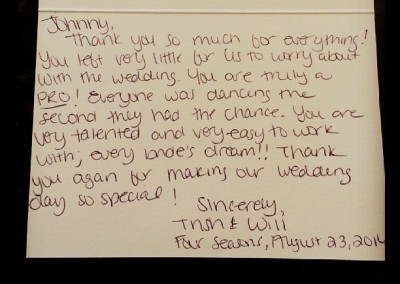 Johnny,
Thank you so much for everything!
You left very little for us to worry about
with the wedding. You are truly a
PRO! Everyone was dancing the
second they had the chance. You are
very talented and very easy to work
with; every bride's dream!! Thank
you again for making our wedding
day so special!
Sincerely,
Trish & Will
Four Seasons, August 23,